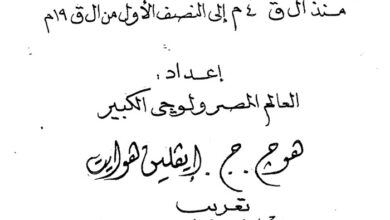 منذ ال ق ٤ م إلى النصف الأول من ال ق ١٩م
إعداد :
العالم المصرولوجى الكبير
هوج . ج . إيڤلين هوايت
تعريب